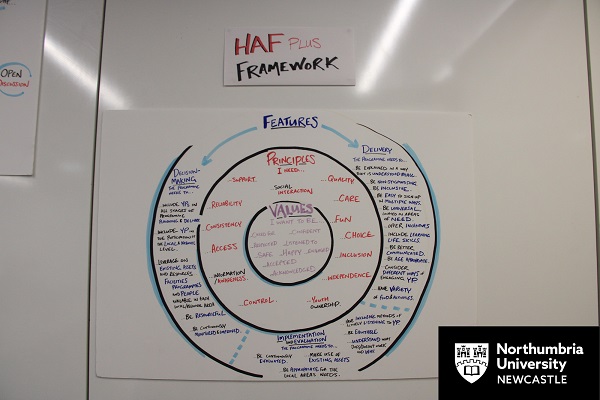 OPEN
DISCUSSION
HAF PLUS
FRAMEWORK
FEATURES
DECISION-
MAKING
THE PROGRAMME
NEEDS TO...
INCLUDE YP IN
ALL STAGES OF
PROGRAMME
PLANNING & DELIVERY
INCLUDE YP IN
LEVERAGE ON
EXISTING ASSETS
AND RESOURCES,
FACILITIES
PROGRAMMES
AND PEOPLE
AVAILABLE IN EACH
BE RESOURCEFUL
BE CONTINUOUSLY
PRINCIPLES
I NEED...
...SUPPORT
SOCIAL
INTERACTION
...QUALITY
RELIABILITY
...CARE
CONSISTENCY
...FUN
ACCESS
...CHOICE
...INCLUSION
INFORMATION
/AWARENESS
...INDEPENDENCE
...CONTROL
...YOUTH
OWNERSHIP
VALUES
I WANT TO BE...
CONFIDENT
LISTENED TO
SAFE HAPPY ENGAGED
ACCEPTED
ACKNOWLEDGED
DELIVERY
THE PROGRAMME NEEDS TO...
BE EXPLAINED IN A WAY
THAT IS UNDERSTANDABLE
BE NON-STIGMATISING
BE INCLUSIVE
BE EASY TO SIGN UP
IN MULTIPLE WAYS
BE UNIVERSAL
IN AREAS OF
NEED
OFFER INCENTIVES
INCLUDE LEARNING
LIFE SKILLS
BE BETTER
COMMUNICATED
BE AGE APPROPRIATE
CONSIDER
DIFFERENT WAYS OF
ENGAGING YP
HAVE VARIETY
OF FOOD & ACTIVITIES
IMPLEMENTATION
AND EVALUATION
THE PROGRAMME NEEDS TO...
BE CONTINUOUSLY
EVALUATED
MAKE USE OF
EXISTING ASSETS
BE APPROPRIATE FOR THE
LOCAL AREAS NEEDS
LISTENING TO YP
BE EQUITABLE
UNDERSTAND WHAT
DOES/DOESN'T WORK
AND WHY
Northumbria
University
NEWCASTLE